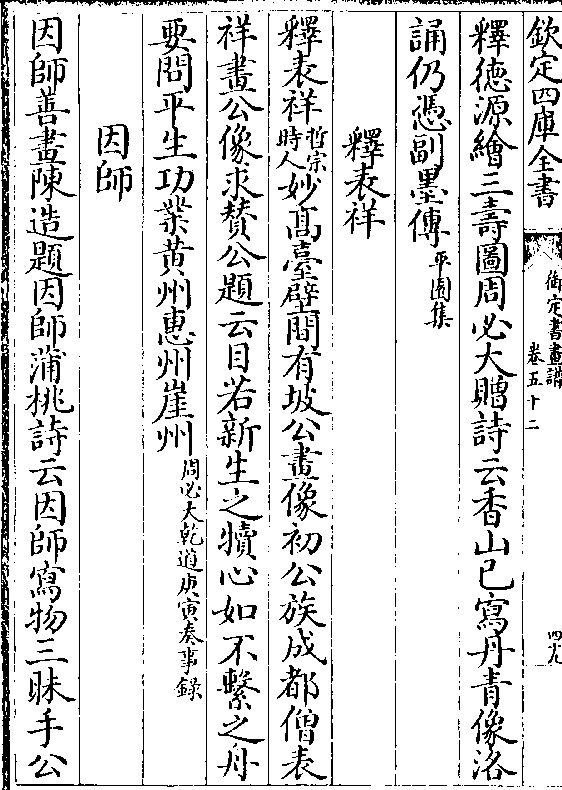 欽定四庫全書
御定書畫譜
卷五十二
四九
釋德源繪三壽圖周必大贈詩云香山已寫丹青像洛
誦仍憑副墨傳平園集
釋表祥
釋表祥哲宗時人妙高臺壁間有坡公畫像初公族成都僧表
祥畫公像求贊公題云目若新生之犢心如不繫之舟
要問平生功業黃州惠州崖州周必大乾道庚寅奏事錄
因師
因師善畫陳造題因師蒲桃詩云因師寫物三昧手公